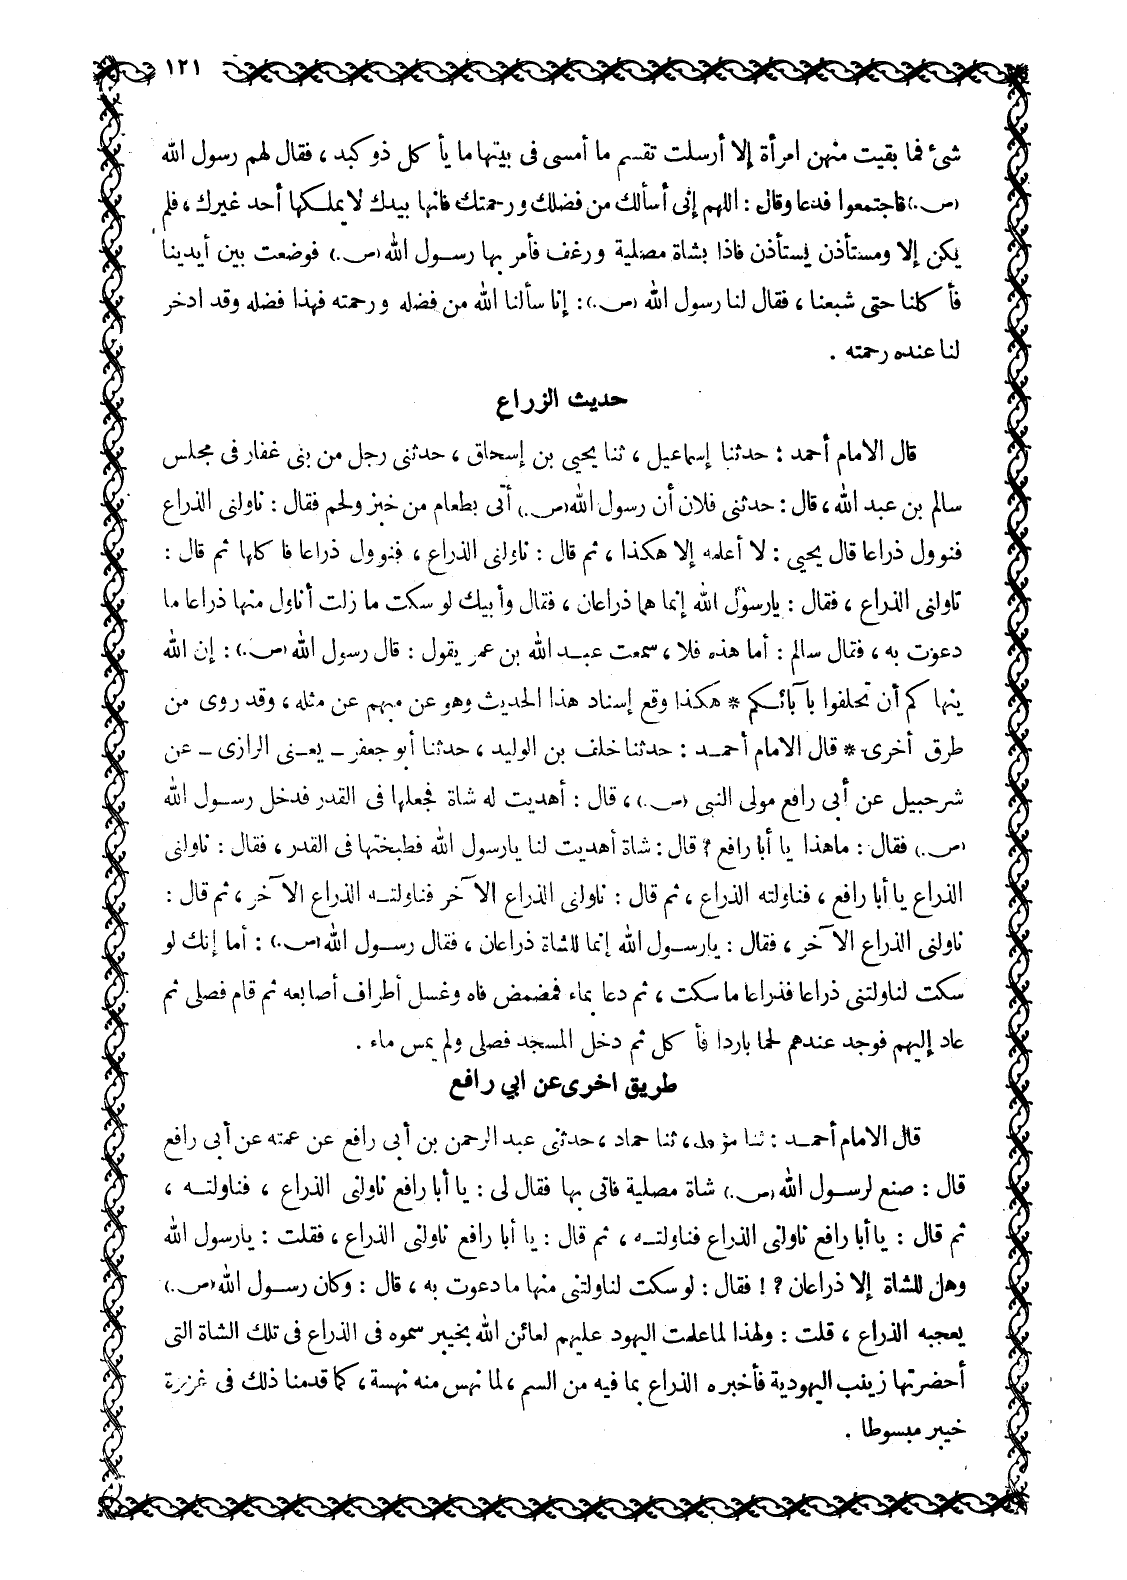 ١٢١
شئ فما بقيت منهن امرأة إلا أرسلت تقسم ما أمسى فى بيتها ما يأ كل ذو كبد ، فقال لهم رسول الله
(ص.) فاجتمعوا فدعا وقال : اللهم إنى أسألك من فضلك ورحمتك فانها بيدك لا يملكها أحد غيرك ، فلم
يكن إلا ومستأذن يستأذن فاذا بشاة مصلية ورغف فأمر بها رسول الله (ص.) فوضعت بين أيدينا
فأ كلنا حتى شبعنا ، فقال لنا رسول الله (ص.) : إنا سألنا الله من فضله ورحمته فهذا فضله وقد ادخر
لنا عنده رحمته .
حديث الزراع
قال الامام أحمد : حدثنا إسماعيل ، ثنا يحيى بن إسحاق ، حدثنى رجل من بنى غفار فى مجلس
سالم بن عبد الله ، قال : حدثنى فلان أن رسول الله (ص.) أتى بطعام من خبز ولحم فقال : ناولنى الذراع
فنوول ذراعا قال يحيى : لا أعلمه إلا هكذا ، ثم قال : ناولنى الذراع ، فنوول ذراعا فا كلها ثم قال :
ناولنى الذراع ، فقال : يارسول الله إنما هما ذراعان ، فقال وأبيك لو سكت ما زلت أناول منها ذراعا ما
دعوت به ، فقال سالم : أما هذه فلا ، سمعت عبد الله بن عمر يقول : قال رسول الله (ص.) : إن الله
ينها كم أن تحلفوا بآبائكم * هكذا وقع إسناد هذا الحديث وهو عن مبهم عن مثله ، وقد روى من
طرق أخرى * قال الامام أحمد : حدثنا خلف بن الوليد ، حدثنا أبو جعفر ـ يعنى الرازى ـ عن
شرحبيل عن أبى رافع مولى النبى (ص.) ، قال : أهديت له شاة فجعلها فى القدر فدخل رسول الله
(ص.) فقال : ماهذا يا أبا رافع ؟ قال : شاة أهديت لنا يارسول الله فطبختها فى القدر ، فقال : ناولنى
الذراع يا أبا رافع ، فناولته الذراع ، ثم قال : ناولنى الذراع الآخر فناولته الذراع الآخر ، ثم قال :
ناولنى الذراع الآخر ، فقال : يارسول الله إنما للشاة ذراعان ، فقال رسول الله (ص.) : أما إنك لو
سكت لناولتنى ذراعا فذراعا ما سكت ، ثم دعا بماء فمضمض فاه وغسل أطراف أصابعه ثم قام فصلى ثم
عاد إليهم فوجد عندهم لحما باردا فأ كل ثم دخل المسجد فصلى ولم يمس ماء .
طريق اخرى عن ابي رافع
قال الامام أحمد : ثنا مؤمل ، ثنا حماد ، حدثنى عبد الرحمن بن أبى رافع عن عمته عن أبى رافع
قال : صنع لرسول الله (ص.) شاة مصلية فاتى بها فقال لى : يا أبا رافع ناولنى الذراع ، فناولته ،
ثم قال : يا أبا رافع ناولنى الذراع فناولته ، ثم قال : يا أبا رافع ناولنى الذراع ، فقلت : يارسول الله
وهل للشاة إلا ذراعان ؟ ! فقال : لو سكت لناولتنى منها ما دعوت به ، قال : وكان رسول الله (ص.)
يعجبه الذراع ، قلت : ولهذا لما علمت اليهود عليهم لعائن الله بخيبر سموه فى الذراع فى تلك الشاة التى
أحضرتها زينب اليهودية فأخبره الذراع بما فيه من السم ، لما نهس منه نهسة ، كما قدمنا ذلك فى غزرة
خيبر مبسوطا .